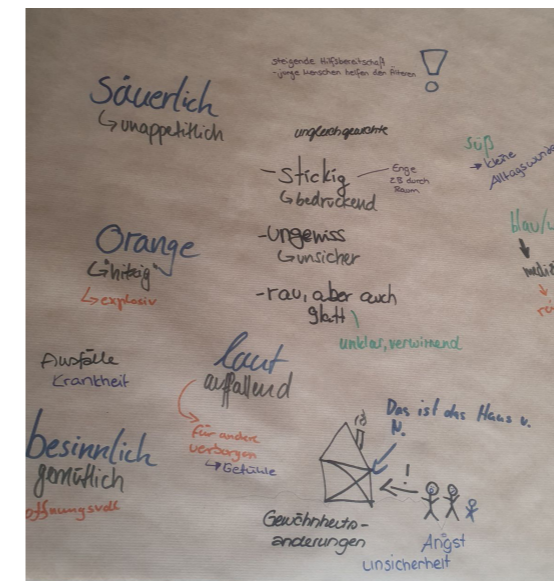 steigende Hilfsbereitschaft
-junge Menschen helfen den Älteren
!
Säuerlich
↳unappetitlich
ungleichgewichte
-stickig
Enge
z.B durch
Raum
↳bedrückend
süß
→ kleine
Alltagswunde
Orange
↳"hitzig"
↳explosiv
-ungewiss
↳unsicher
blau/
-rau, aber auch
glatt
unklar, verwirrend
Ausfälle
Krankheit
laut
auffallend
für andere
verborgen
↳Gefühle
besinnlich
gemütlich
offnungsvoll
Das ist das Haus v.
N.
!
Gewohnheits-
änderungen
Angst
Unsicherheit